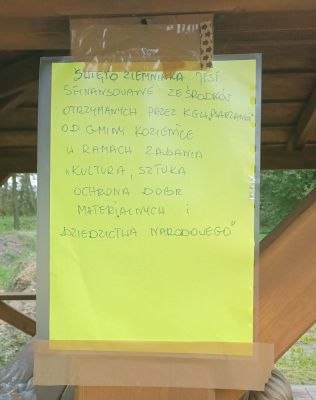 ŚWIĘTO ZIEMNIAKA JEST
SFINANSOWANE ZE ŚRODKÓW
OTRZYMANYCH PRZEZ KGW
OD GMINY KOZIENICE
W RAMACH ZADANIA
„KULTURA, SZTUKA
OCHRONA DÓBR
MATERIALNYCH I
DZIEDZICTWA NARODOWEGO"